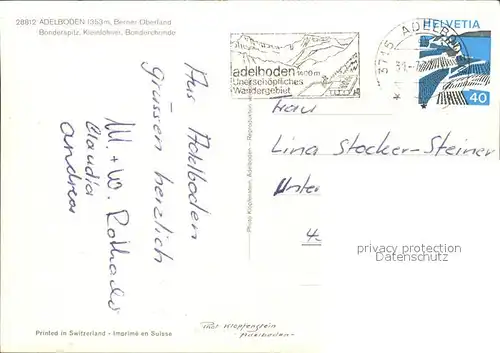 28812 ADELBODEN 1353 m, Berner Oberland
Bonderspitz, Kleinlohner, Bonderchrinde
HELVETIA
40
3715 ADELBODEN
adelboden 1400 m
Unerschöpfliches
Wandergebiet
Aus Adelboden
grüssen herzlich
M. + W.
Claudia
Andrea
Frau
Lina Stocker-Steiner
Unter
4.
privacy protection
Datenschutz
Photo Klopfenstein, Adelboden - Reproduktion
Printed in Switzerland - Imprimé en Suisse
Phot. Klopfenstein
Adelboden